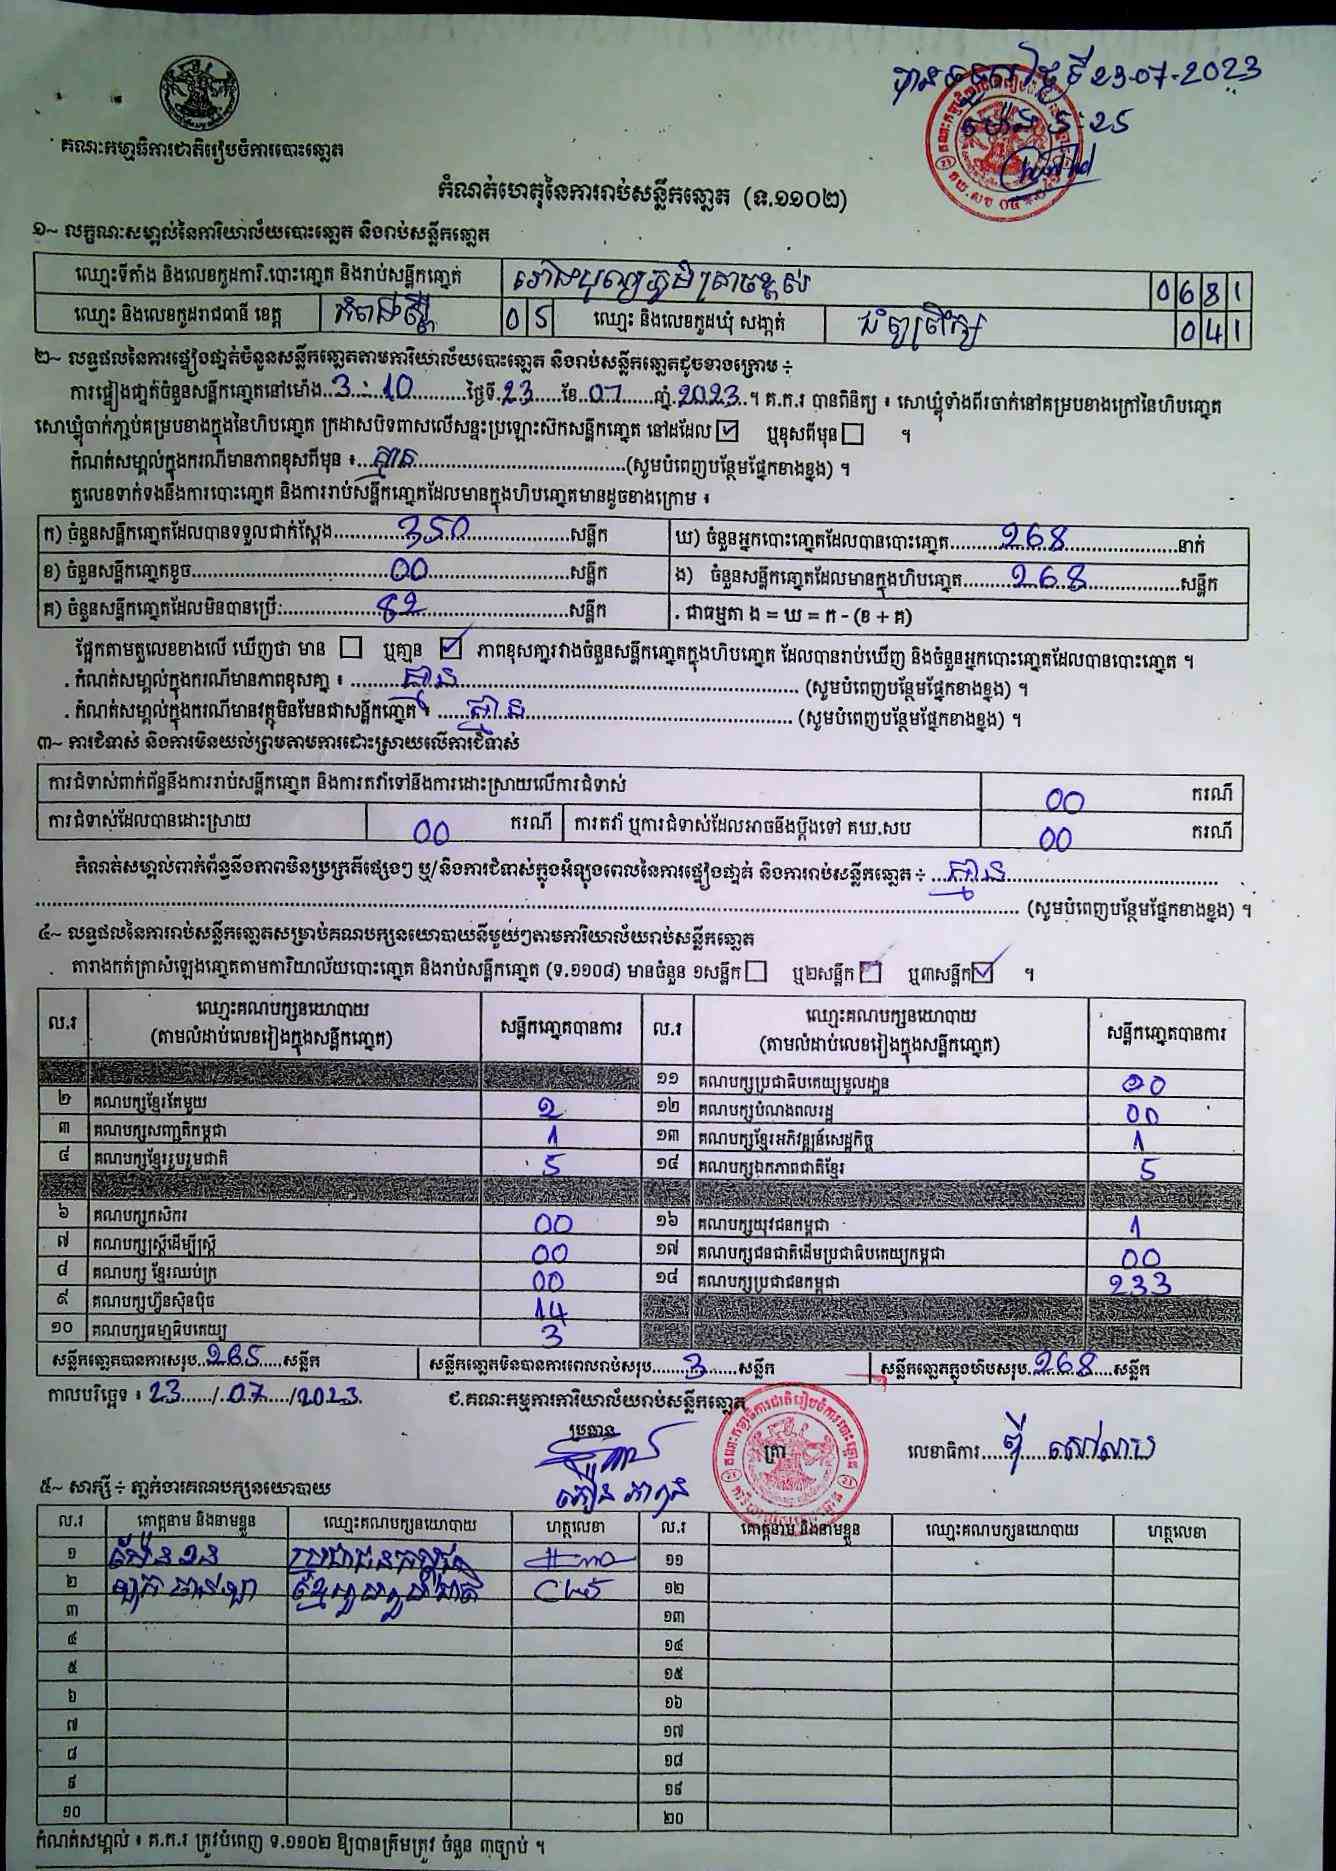 បានទទួលនៅថ្ងៃទី 23-07-2023
ម៉ោង 5:25
គណៈកម្មាធិការជាតិរៀបចំការបោះឆ្នោត
កំណត់ហេតុនៃការរាប់សន្លឹកឆ្នោត (ទ.១១០២)
១~ លក្ខណៈសម្គាល់នៃការិយាល័យបោះឆ្នោត និងរាប់សន្លឹកឆ្នោត
ឈ្មោះទីតាំង និងលេខកូដការិ.បោះឆ្នោត និងរាប់សន្លឹកឆ្នោត 0681
ឈ្មោះ និងលេខកូដរាជធានី ខេត្ត កំពង់ស្ពឺ 05 ឈ្មោះ និងលេខកូដឃុំ សង្កាត់ 041
២~ លទ្ធផលនៃការផ្ទៀងផ្ទាត់ចំនួនសន្លឹកឆ្នោតតាមការិយាល័យបោះឆ្នោត និងរាប់សន្លឹកឆ្នោតដូចខាងក្រោម ÷
ការផ្ទៀងផ្ទាត់ចំនួនសន្លឹកឆ្នោតនៅម៉ោង 3:10 ថ្ងៃទី 23 ខែ 07 ឆ្នាំ 2023 ។ គ.ក.រ បានពិនិត្យ ៖ សោឃ្លុំទាំងពីរចាក់នៅគម្របខាងក្រៅនៃហិបឆ្នោត
សោឃ្លុំចាក់ភ្ជាប់គម្របខាងក្នុងនៃហិបឆ្នោត ក្រដាសបិទពាសលើសន្ទះប្រឡោះស៊កសន្លឹកឆ្នោត នៅដដែល ☑ ឬខុសពីមុន ☐ ។
កំណត់សម្គាល់ក្នុងករណីមានភាពខុសពីមុន ៖ គ្មាន (សូមបំពេញបន្ថែមផ្នែកខាងខ្នង) ។
តួលេខទាក់ទងនឹងការបោះឆ្នោត និងការរាប់សន្លឹកឆ្នោតដែលមានក្នុងហិបឆ្នោតមានដូចខាងក្រោម ៖
ក) ចំនួនសន្លឹកឆ្នោតដែលបានទទួលជាក់ស្តែង 350 សន្លឹក ឃ) ចំនួនអ្នកបោះឆ្នោតដែលបានបោះឆ្នោត 268 នាក់
ខ) ចំនួនសន្លឹកឆ្នោតខូច 00 សន្លឹក ង) ចំនួនសន្លឹកឆ្នោតដែលមានក្នុងហិបឆ្នោត 268 សន្លឹក
គ) ចំនួនសន្លឹកឆ្នោតដែលមិនបានប្រើ: 82 សន្លឹក . ជាធម្មតា ង = ឃ = ក - (ខ + គ)
ផ្អែកតាមតួលេខខាងលើ ឃើញថា មាន ☐ ឬគ្មាន ☑ ភាពខុសគ្នារវាងចំនួនសន្លឹកឆ្នោតក្នុងហិបឆ្នោត ដែលបានរាប់ឃើញ និងចំនួនអ្នកបោះឆ្នោតដែលបានបោះឆ្នោត ។
. កំណត់សម្គាល់ក្នុងករណីមានភាពខុសគ្នា ៖ គ្មាន (សូមបំពេញបន្ថែមផ្នែកខាងខ្នង) ។
. កំណត់សម្គាល់ក្នុងករណីមានវត្ថុមិនមែនជាសន្លឹកឆ្នោត ៖ គ្មាន (សូមបំពេញបន្ថែមផ្នែកខាងខ្នង) ។
៣~ ការជំទាស់ និងការមិនយល់ព្រមតាមការដោះស្រាយលើការជំទាស់
ការជំទាស់ពាក់ព័ន្ធនឹងការរាប់សន្លឹកឆ្នោត និងការតវ៉ាទៅនឹងការដោះស្រាយលើការជំទាស់ 00 ករណី
ការជំទាស់ដែលបានដោះស្រាយ 00 ករណី ការតវ៉ា ឬការជំទាស់ដែលអាចនឹងប្តឹងទៅ គឃ.សប 00 ករណី
កំណត់សម្គាល់ពាក់ព័ន្ធនឹងភាពមិនប្រក្រតីផ្សេងៗ ឬ/និងការជំទាស់ក្នុងអំឡុងពេលនៃការផ្ទៀងផ្ទាត់ និងការរាប់សន្លឹកឆ្នោត ÷ គ្មាន
(សូមបំពេញបន្ថែមផ្នែកខាងខ្នង) ។
៤~ លទ្ធផលនៃការរាប់សន្លឹកឆ្នោតសម្រាប់គណបក្សនយោបាយនីមួយៗតាមការិយាល័យរាប់សន្លឹកឆ្នោត
តារាងកត់ត្រាសំឡេងឆ្នោតតាមការិយាល័យបោះឆ្នោត និងរាប់សន្លឹកឆ្នោត (ទ.១១០៨) មានចំនួន ១សន្លឹក ☐ ឬ២សន្លឹក ☐ ឬ៣សន្លឹក ☑ ។
ល.រ ឈ្មោះគណបក្សនយោបាយ (តាមលំដាប់លេខរៀងក្នុងសន្លឹកឆ្នោត) សន្លឹកឆ្នោតបានការ ល.រ ឈ្មោះគណបក្សនយោបាយ (តាមលំដាប់លេខរៀងក្នុងសន្លឹកឆ្នោត) សន្លឹកឆ្នោតបានការ
១១ គណបក្សប្រជាធិបតេយ្យមូលដ្ឋាន
២ គណបក្សខ្មែរតែមួយ 2 ១២ គណបក្សបំណងពលរដ្ឋ 00
៣ គណបក្សសញ្ជាតិកម្ពុជា 1 ១៣ គណបក្សខ្មែរអភិវឌ្ឍន៍សេដ្ឋកិច្ច 1
៤ គណបក្សខ្មែររួបរួមជាតិ 5 ១៤ គណបក្សឯកភាពជាតិខ្មែរ 5
៦ គណបក្សកសិករ 00 ១៦ គណបក្សយុវជនកម្ពុជា 1
៧ គណបក្សស្ត្រីដើម្បីស្ត្រី 00 ១៧ គណបក្សជនជាតិដើមប្រជាធិបតេយ្យកម្ពុជា 00
៨ គណបក្ស ខ្មែរឈប់ក្រ 00 ១៨ គណបក្សប្រជាជនកម្ពុជា 233
៩ គណបក្សហ៊្វុនស៊ិនប៉ិច 14
១០ គណបក្សធម្មាធិបតេយ្យ 3
សន្លឹកឆ្នោតបានការសរុប 265 សន្លឹក សន្លឹកឆ្នោតមិនបានការពេលរាប់សរុប 3 សន្លឹក សន្លឹកឆ្នោតក្នុងហិបសរុប 268 សន្លឹក
កាលបរិច្ឆេទ ៖ 23/07/2023 ជ.គណៈកម្មការការិយាល័យរាប់សន្លឹកឆ្នោត
ប្រធាន ត្រា លេខាធិការ
៥~ សាក្សី ÷ ភ្នាក់ងារគណបក្សនយោបាយ
ល.រ គោត្តនាម និងនាមខ្លួន ឈ្មោះគណបក្សនយោបាយ ហត្ថលេខា ល.រ គោត្តនាម និងនាមខ្លួន ឈ្មោះគណបក្សនយោបាយ ហត្ថលេខា
១ ប្រជាជនកម្ពុជា ១១
២ ខ្មែររួបរួមជាតិ ១២
៣ ១៣
៤ ១៤
៥ ១៥
៦ ១៦
៧ ១៧
៨ ១៨
៩ ១៩
១០ ២០
កំណត់សម្គាល់ ៖ គ.ក.រ ត្រូវបំពេញ ទ.១១០២ ឱ្យបានត្រឹមត្រូវ ចំនួន ៣ច្បាប់ ។